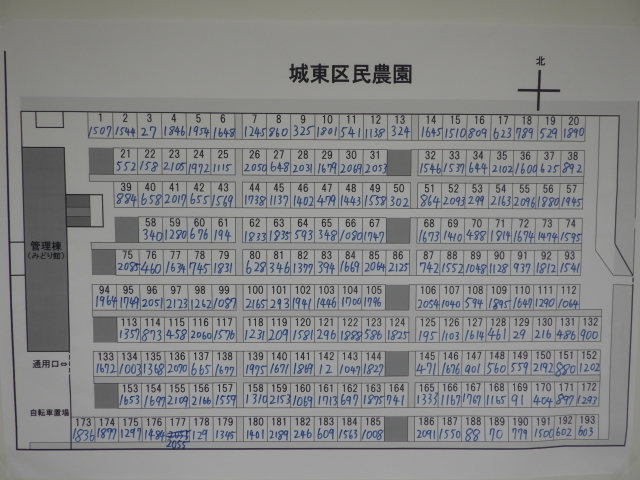 城東区民農園
北
1 2 3 4 5 6 7 8 9 10 11 12 13 14 15 16 17 18 19 20
1507 1544 27 1846 1954 1648 1245 860 325 1801 541 1138 324 1645 1510 809 623 789 529 1890
21 22 23 24 25 26 27 28 29 30 31 32 33 34 35 36 37 38
552 158 2105 1972 1115 2050 648 2031 1679 2069 2053 1546 1537 644 2102 1600 625 892
39 40 41 42 43 44 45 46 47 48 49 50 51 52 53 54 55 56 57
884 658 2017 655 1569 1738 1137 1402 479 1443 1558 302 864 2093 299 2163 2096 1880 1945
58 59 60 61 62 63 64 65 66 67 68 69 70 71 72 73 74
340 1280 676 194 1833 1835 593 348 1080 1747 1673 1410 488 1814 1674 1474 1595
管理棟
(みどり館)
75 76 77 78 79 80 81 82 83 84 85 86 87 88 89 90 91 92 93
2085 460 1634 745 1831 628 346 1377 394 1669 2064 2125 742 1552 1048 1128 937 1812 1541
94 95 96 97 98 99 100 101 102 103 104 105 106 107 108 109 110 111 112
1964 1749 2051 2123 1262 1087 2165 293 1941 1446 1700 1796 2054 1040 594 1895 1647 1290 1064
113 114 115 116 117 118 119 120 121 122 123 124 125 126 127 128 129 130 131 132
1357 873 458 2060 1576 1231 209 1581 296 1888 586 1825 195 1103 1614 461 29 216 486 900
133 134 135 136 137 138 139 140 141 142 143 144 145 146 147 148 149 150 151 152
通用口⇔
1672 1003 1368 2070 665 1677 1975 1671 1869 12 1047 1827 471 1676 901 560 559 2192 880 1202
153 154 155 156 157 158 159 160 161 162 163 164 165 166 167 168 169 170 171 172
1653 1697 2109 2166 1559 1310 2153 1069 1713 697 1875 741 1333 1167 1767 1165 91 404 897 1293
自転車置場
173 174 175 176 177 178 179 180 181 182 183 184 185 186 187 188 189 190 191 192 193
1836 1897 1297 1484 2053 129 1345 1401 2189 246 609 1563 1008 2091 1550 88 70 779 1500 602 603
2055